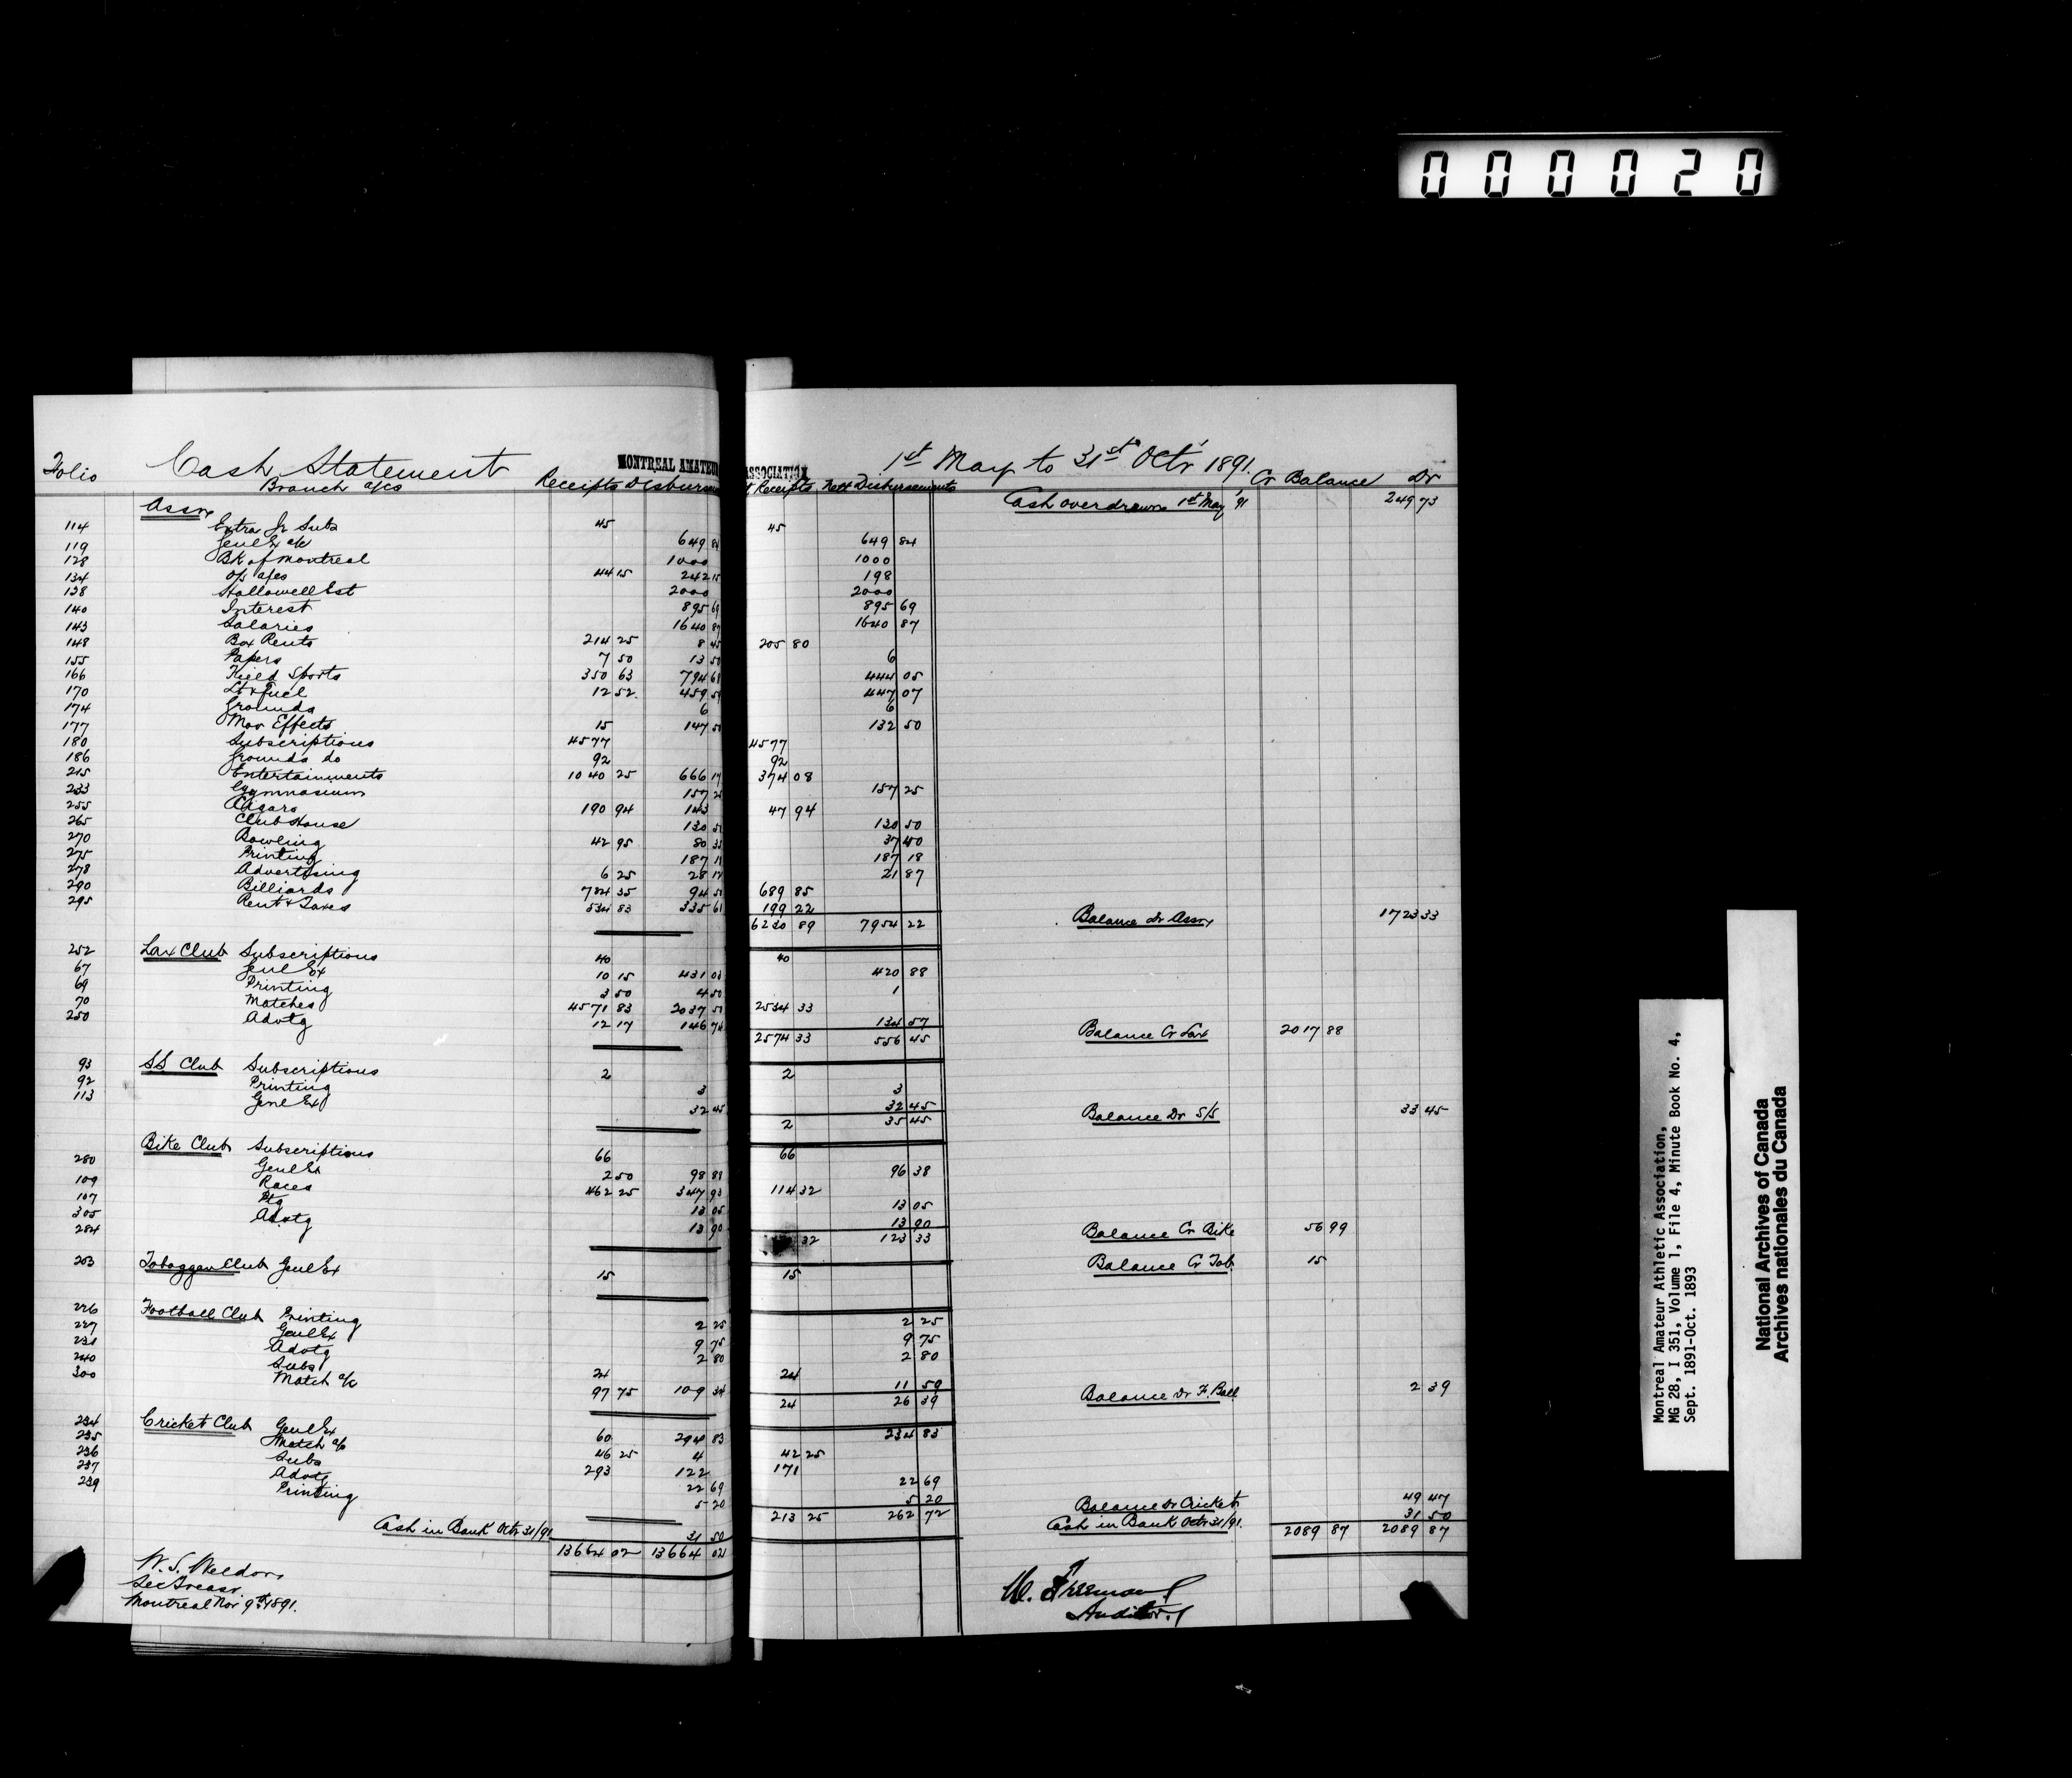 000020
Cash Statement MONTREAL AMATEUR ASSOCIATION 1st May to 31st Octr 1891.
Folio Branch a/cs Receipts Disbursements Receipts Nett Disbursements Cr Balance Dr
Assn Cash overdrawn 1st May '91 249 73
114 Extra Jr Subs 45 45
119 Genl Ex a/c 649 84 649 84
128 Bk of Montreal 1000 1000
134 O/s a/cs 44 15 242 15 198
138 Hallowell Est 2000 2000
140 Interest 895 69 895 69
143 Salaries 1640 87 1640 87
148 Box Rents 214 25 8 45 205 80
155 Papers 7 50 13 50 6
166 Field Sports 350 63 794 68 444 05
170 Lt & Fuel 12 52 459 59 447 07
174 Grounds 6 6
177 Mov Effects 15 147 50 132 50
180 Subscriptions 4577 4577
186 Grounds do 92 92
215 Entertainments 1040 25 666 17 374 08
233 Gymnasium 157 25 157 25
255 Cigars 190 94 143 47 94
265 Club House 130 50 130 50
270 Bowling 42 95 80 35 37 40
275 Printing 187 18 187 18
278 Advertising 6 25 28 12 21 87
290 Billiards 784 35 94 50 689 85
295 Rent & Taxes 534 83 335 61 199 22
6230 89 7954 22 Balance Dr Assn 1723 33
252 Lax Club Subscriptions 40 40
67 Genl Ex 10 15 431 03 420 88
69 Printing 3 50 4 50 1
70 Matches 4571 83 2037 50 2534 33
250 Advtg 12 17 146 74 134 57
2574 33 556 45 Balance Cr Lax 2017 88
93 SS Club Subscriptions 2 2
92 Printing 3 3
113 Genl Ex 32 45 32 45
2 35 45 Balance Dr S/S 33 45
280 Bike Club Subscriptions 66 66
109 Genl Ex 2 50 98 88 96 38
107 Races 462 25 347 93 114 32
305 Ptg 13 05 13 05
284 Advtg 13 90 13 90
32 123 33 Balance Cr Bike 56 99
203 Toboggan Club Genl Ex 15 15 Balance Cr Tob. 15
226 Football Club Printing 2 25 2 25
227 Genl Ex 9 75 9 75
231 Advtg 2 80 2 80
240 Subs 24 24
300 Match a/c 97 75 109 34 11 59
24 26 39 Balance Dr F. Ball 2 39
234 Cricket Club Genl Ex 60 294 83 234 83
235 Match a/c 46 25 4 42 25
236 Subs 293 122 171
237 Advtg 22 69 22 69
239 Printing 5 20 5 20
213 25 262 72 Balance Dr Cricket 49 47
Cash in Bank Octr 31/91 31 50 Cash in Bank Octr 31/91. 31 50
13664 02 13664 02 2089 87 2089 87
W. S. Weldon
Sec Treasr.
Montreal Nov 9th 1891.
W. Freeman
Auditor.
Montreal Amateur Athletic Association,
MG 28, I 351, Volume 1, File 4, Minute Book No. 4,
Sept. 1891-Oct. 1893
National Archives of Canada
Archives nationales du Canada